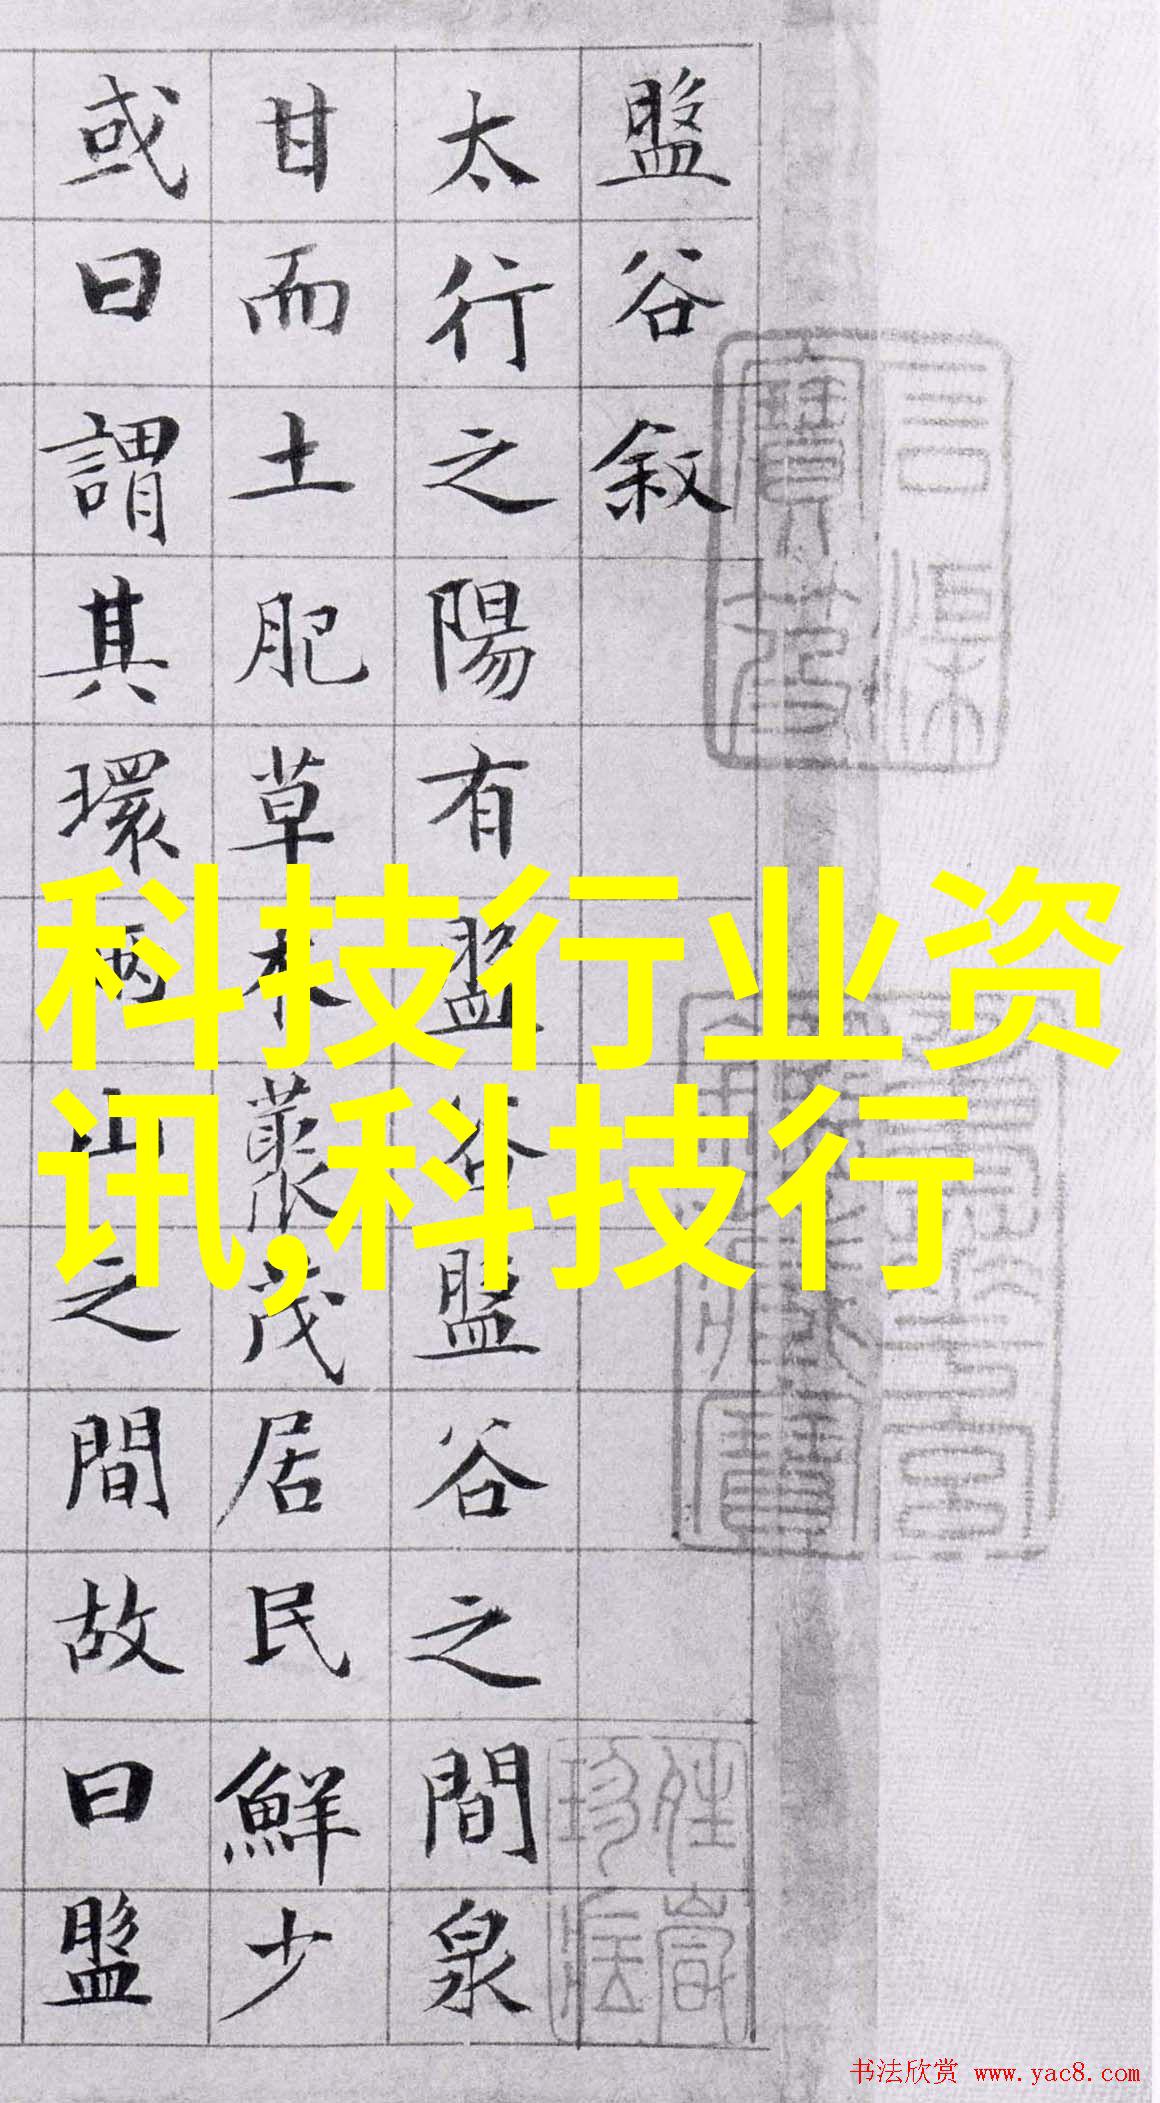 盤谷敘
太行之陽有盤谷盤谷之間泉
甘而土肥草木叢茂居民鮮少
或曰謂其環兩山之間故曰盤
科技行业资
讯,科技行
书法欣赏 www.yac8.com